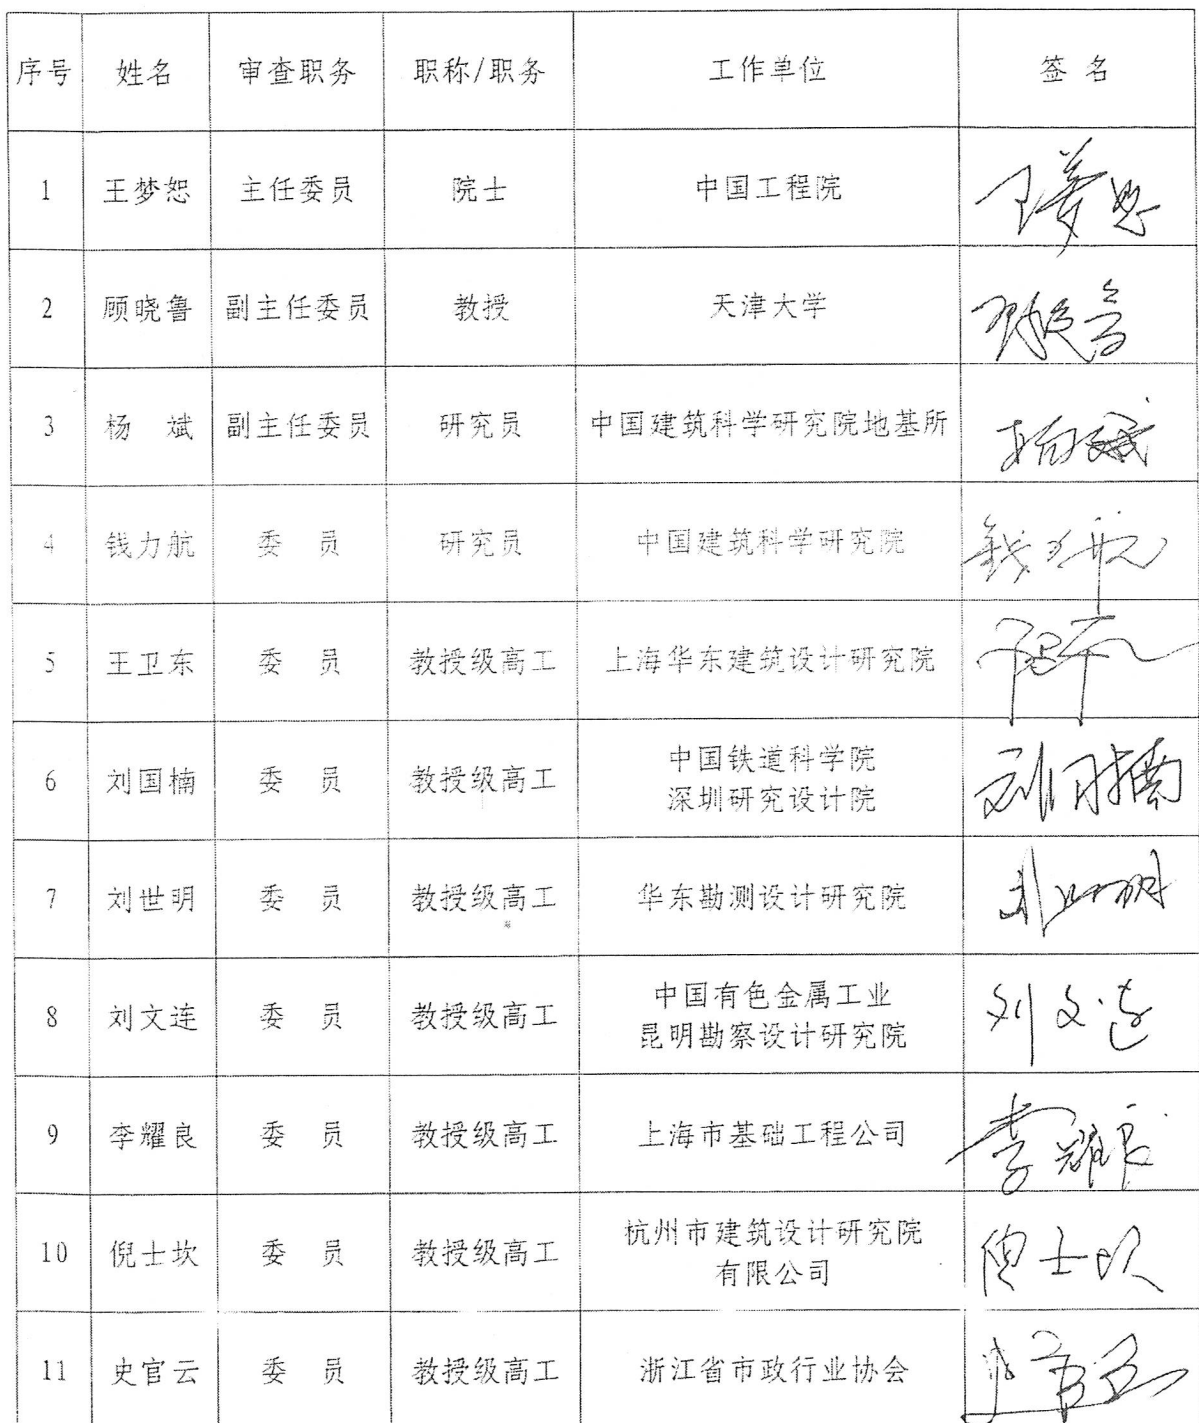 序号 姓名 审查职务 职称/职务 工作单位 签 名
1 王梦恕 主任委员 院士 中国工程院 王梦恕
2 顾晓鲁 副主任委员 教授 天津大学 顾晓鲁
3 杨 斌 副主任委员 研究员 中国建筑科学研究院地基所 杨斌
4 钱力航 委 员 研究员 中国建筑科学研究院 钱力航
5 王卫东 委 员 教授级高工 上海华东建筑设计研究院
6 刘国楠 委 员 教授级高工 中国铁道科学院
深圳研究设计院 刘国楠
7 刘世明 委 员 教授级高工 华东勘测设计研究院 刘世明
8 刘文连 委 员 教授级高工 中国有色金属工业
昆明勘察设计研究院 刘文连
9 李耀良 委 员 教授级高工 上海市基础工程公司 李耀良
10 倪士坎 委 员 教授级高工 杭州市建筑设计研究院
有限公司 倪士坎
11 史官云 委 员 教授级高工 浙江省市政行业协会 史官云